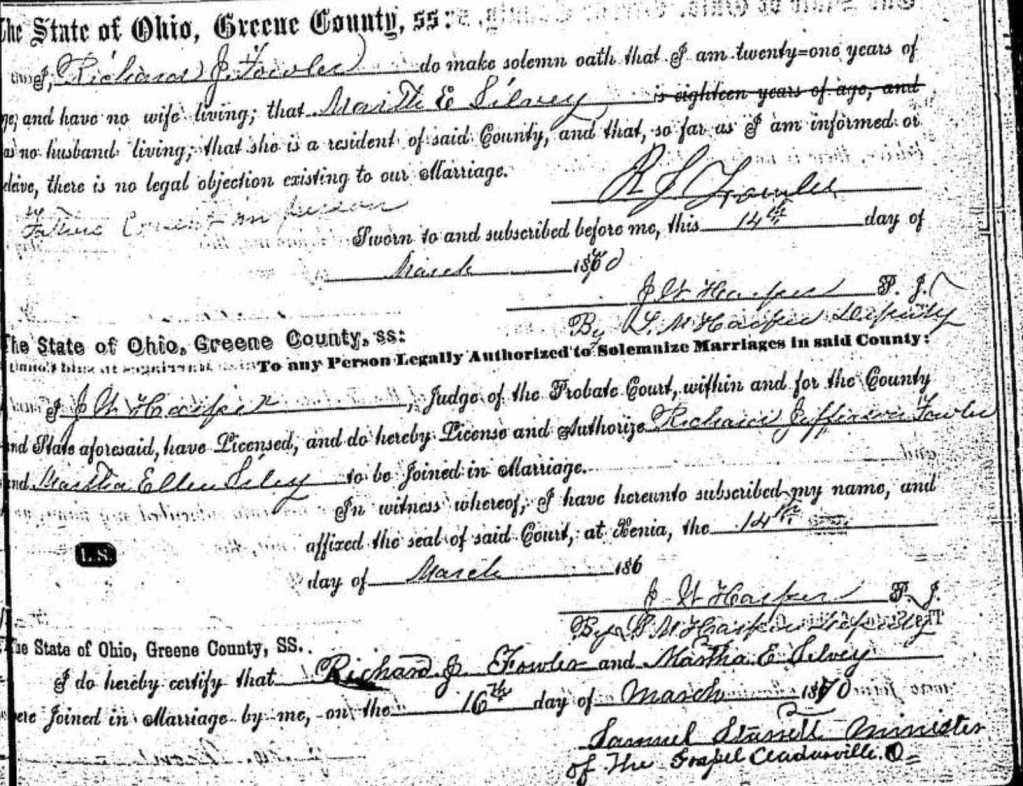 The State of Ohio, Greene County, ss:
I, Richard J Fowler do make solemn oath that I am twenty=one years of
age; and have no wife living; that Marth E Silvey is eighteen years of age, and
as no husband living; that she is a resident of said County, and that, so far as I am informed or
elieve, there is no legal objection existing to our Marriage.
R J Fowler
by
Fathers Consent in person
Sworn to and subscribed before me, this 14th day of
March 1870
J W Harper P. J.
By S. M Harper Deputy
The State of Ohio, Greene County, ss:
To any Person Legally Authorized to Solemnize Marriages in said County:
I J W Harper, Judge of the Probate Court, within and for the County
and State aforesaid, have Licensed, and do hereby License and Authorize Richard Jefferson Fowler
and Martha Ellen Silvy to be Joined in Marriage.
In witness whereof, I have hereunto subscribed my name, and
affixed the seal of said Court, at Xenia, the 14th
L.S.
day of March 186
J W Harper P. J.
By S M Harper Deputy
The State of Ohio, Greene County, SS.
I do hereby certify that Richard J Fowler and Martha E Silvey
were Joined in Marriage by me, on the 16th day of March 1870
Samuel Minister
of The Gospel Ceadarville. O